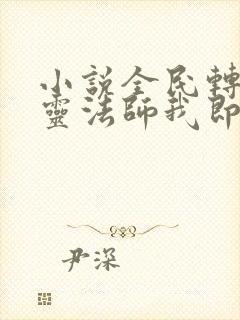 小説全民轉
靈法師我即
尹深